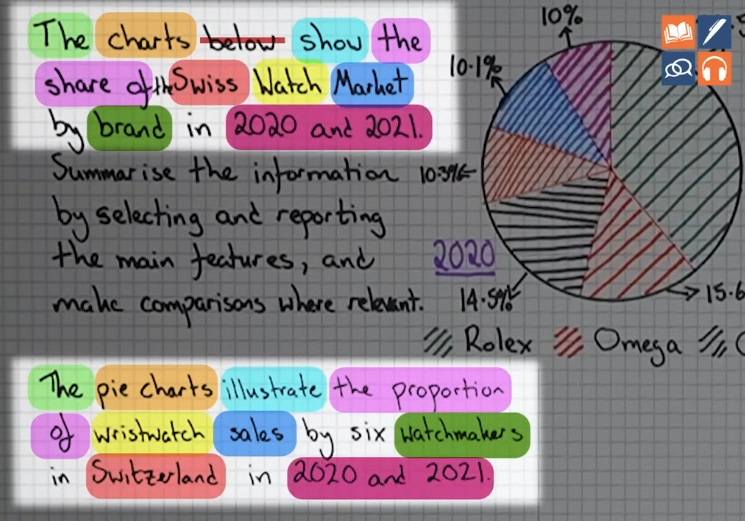 The charts below show the
share of the Swiss Watch Market
by brand in 2020 and 2021.
Summarise the information
by selecting and reporting
the main features, and
make comparisons where relevant.
10%
10.1%
10.3%
14.5%
15.6
2020
Rolex Omega
The pie charts illustrate the proportion
of wristwatch sales by six watchmakers
in Switzerland in 2020 and 2021.